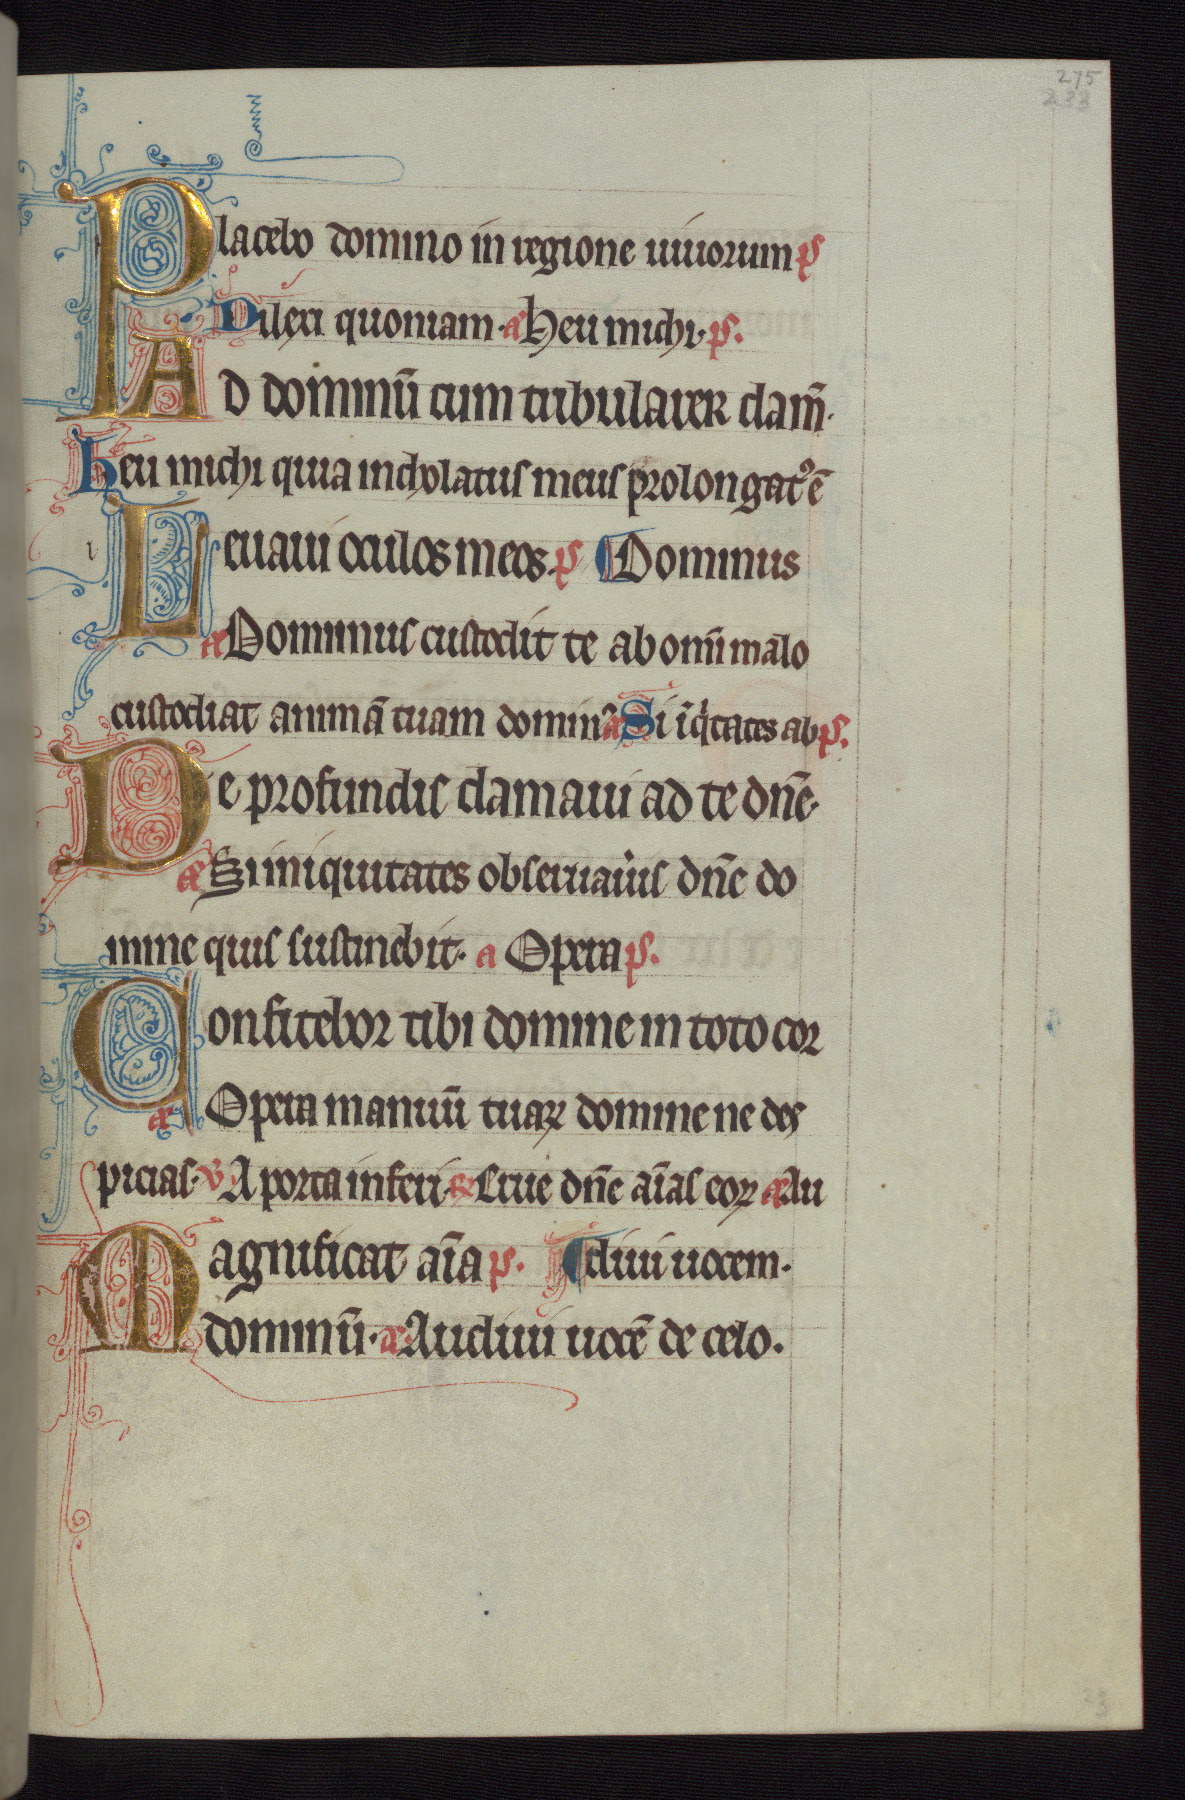 275
233
Placebo domino in regione uiuorum p̄s
Dilexi quoniam · añ Heu michi · p̄s.
Ad dominū cum tribularer clam̄.
Heu michi quia incholatus meus prolongatꝰ ē
Leuaui oculos meos. p̄s ¶ Dominus
añ Dominus custodit te ab omni malo
custodiat animā tuam dominꝰ añ Si iq̄itates ab p̄s.
De profundis clamaui ad te dn̄e.
añ Si iniquitates obseruaueris dn̄e do
mine quis sustinebit. a Opera p̄s.
Confitebor tibi domine in toto cor
añ Opera manuū tuaꝝ domine ne des
picias. v̄ A porta inferi. ꝶ Erue dn̄e aīas eoꝝ añ Au
Magnificat aīa p̄s. ¶ diui uocem.
dominū. añ Audiui uocē de celo.